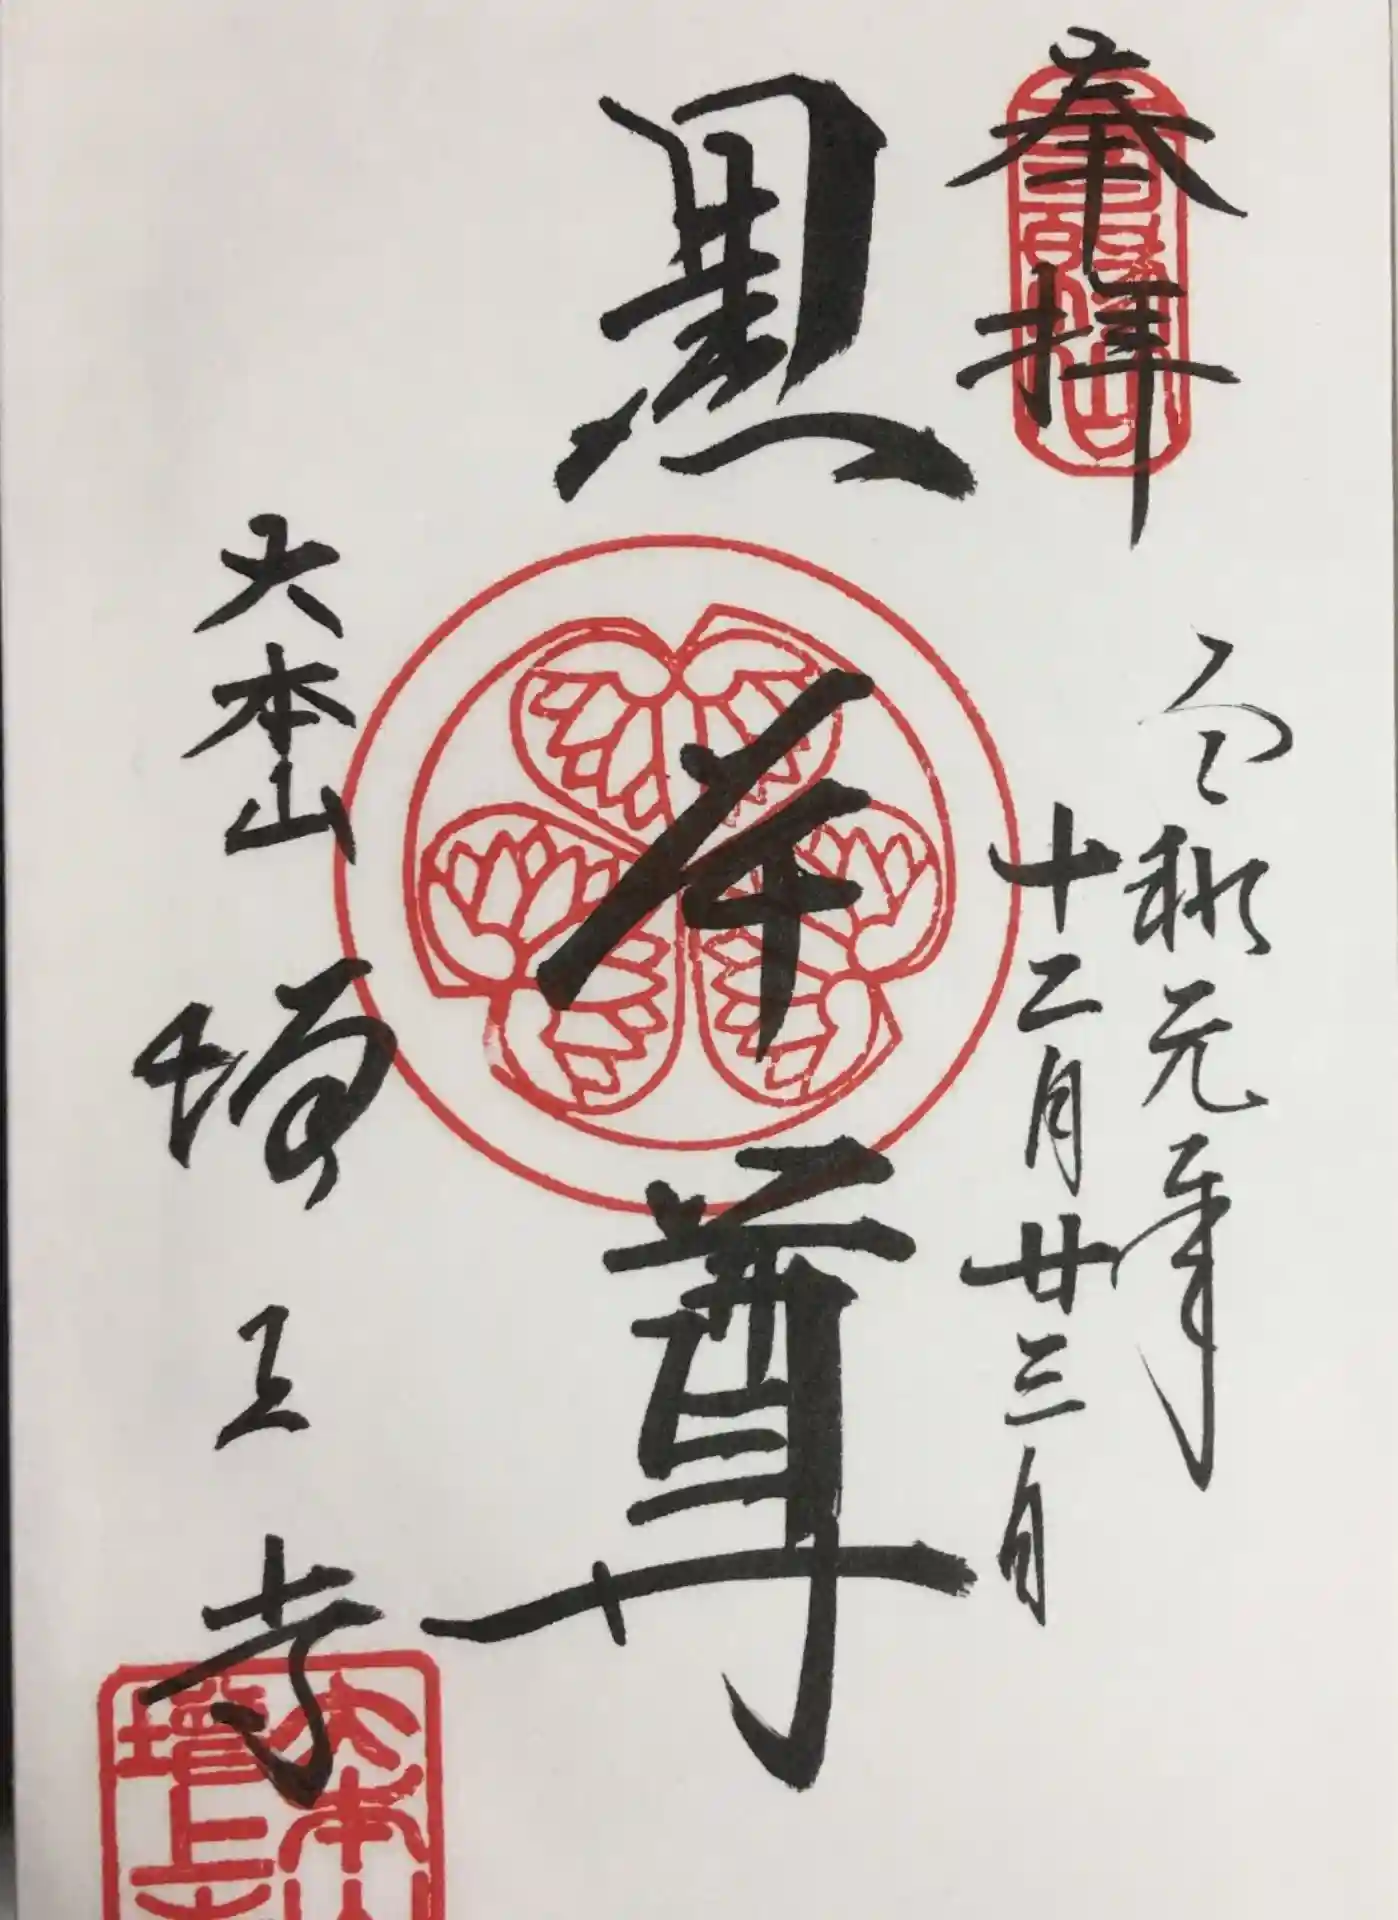 奉拝
令和元年
十二月廿三日
黒本尊
大本山
増上寺
大本山
増上